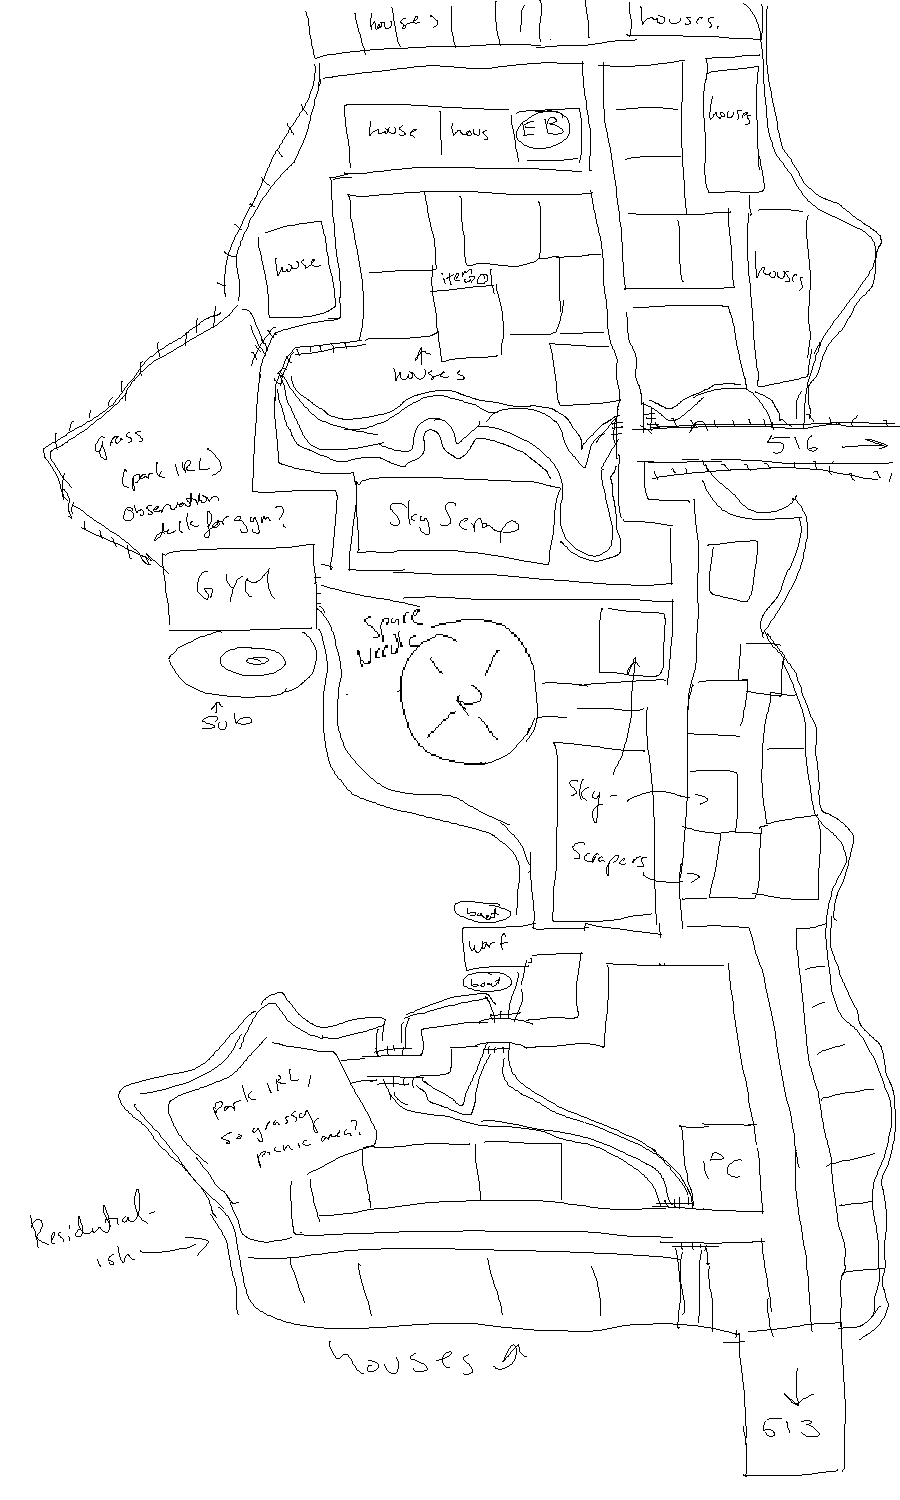 houses
houses.
house
hous
EB
houses
house
item
houses
houses
516
grass
(park IRL)
observation
deck for gym?
Sky Scrap
GYM
Space
Needle
sub
Sky-
Scrapers
boat
worf
boat
Park IRL,
so grassy
picnic area?
PC
Residential-
ish
houses
513